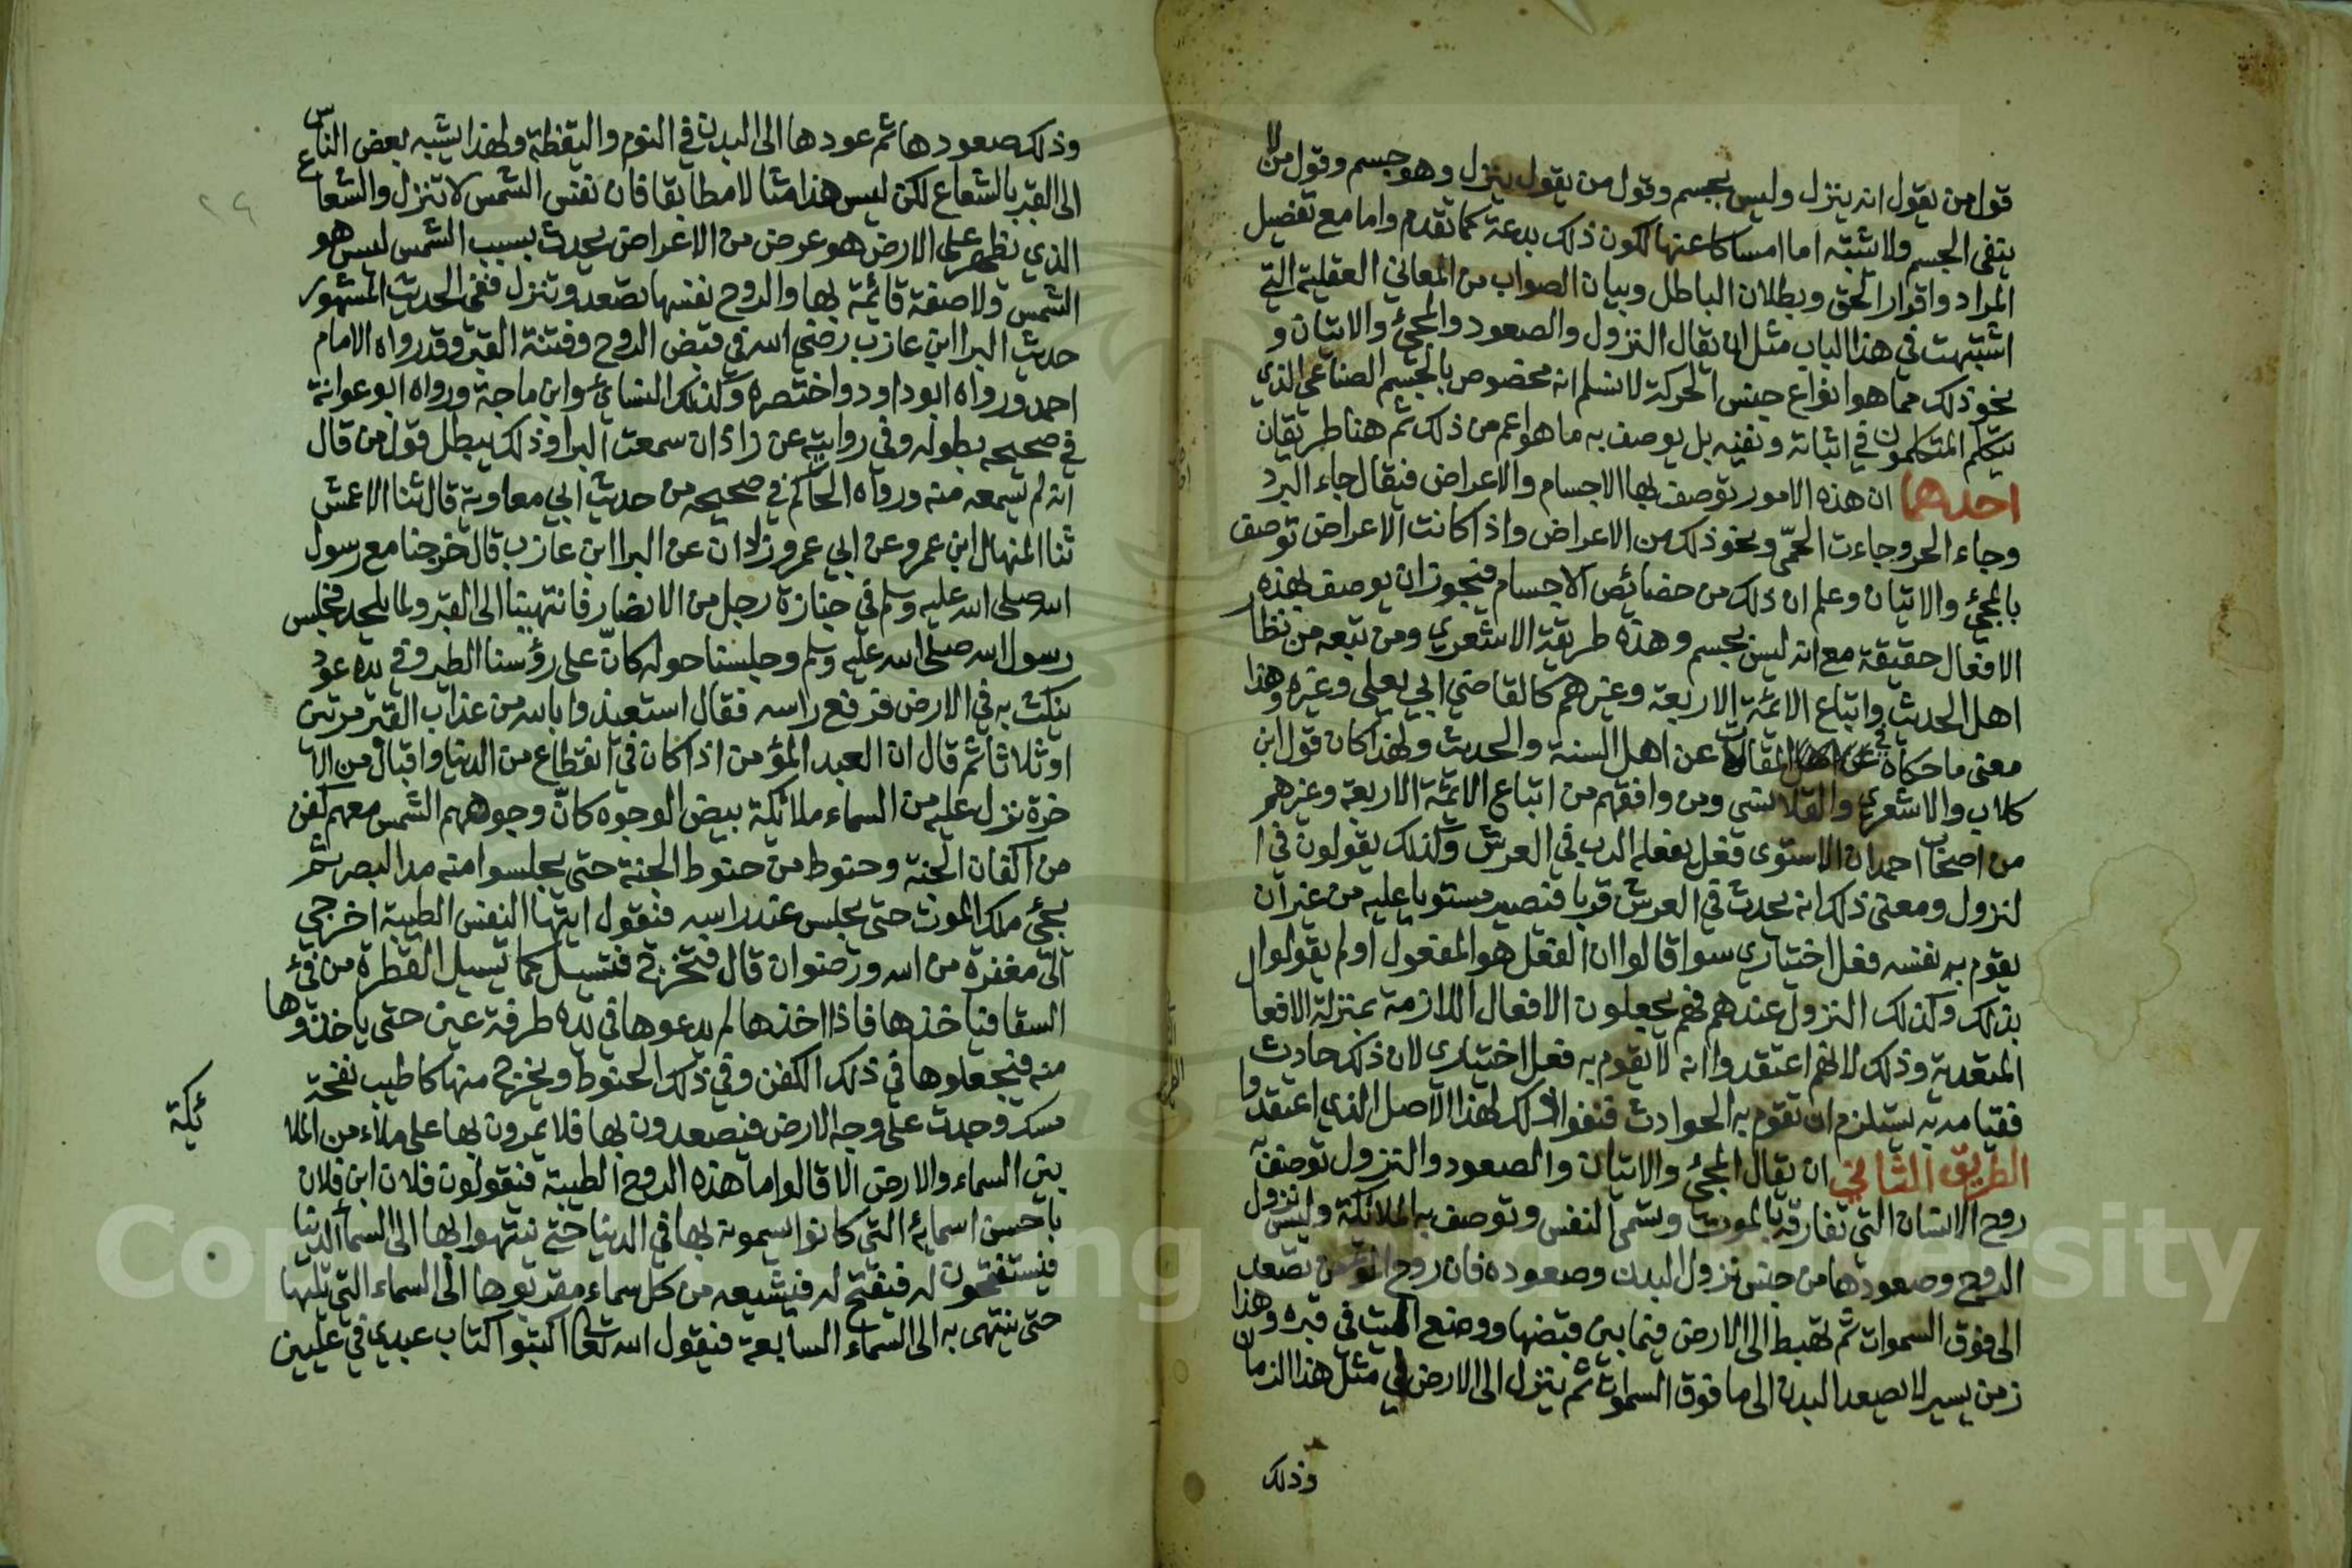 قول من يقول انه ينزل وليس بجسم وقول من يقول ينزل وهو جسم وقول من لا
ينفى الجسم ولا يثبته اما امساكا عنهما لكون ذلك بدعة كما تقدم واما مع تفصيل
المراد واقرار الحق وبطلان الباطل وبيان الصواب من المعاني العقلية التي
اشتبهت في هذا الباب مثل ان يقال النزول والصعود والمجئ والاتيان و
نحو ذلك مما هو انواع جنس الحركة لا نسلم انه مخصوص بالجسم الصناعي الذي
يتكلم المتكلمون في اثباته ونفيه بل يوصف به ما هو اعم من ذلك ثم هنا طريقان
احدهما ان هذه الامور توصف بها الاجسام والاعراض فيقال جاء البرد
وجاء الحر وجاءت الحمّى ونحو ذلك من الاعراض واذا كانت الاعراض توصف
بالمجئ والاتيان وعلم ان ذلك من خصائص الاجسام فيجوز ان يوصف بهذه
الافعال حقيقة مع انه ليس بجسم وهذه طريقة الاشعري ومن تبعه من نظار
اهل الحديث واتباع الائمة الاربعة وغيرهم كالقاضي ابي يعلى وغيره وهذا
معنى ما حكاه في المقالات عن اهل السنة والحديث ولهذا كان قول ابن
كلاب والاشعري والقلانسي ومن وافقهم من اتباع الائمة الاربعة وغيرهم
من اصحاب احمد ان الاستوى فعل يفعله الرب في العرش وكذلك يقولون في ا
لنزول ومعنى ذلك انه يحدث في العرش قربا فيصير مستويا عليه من غير ان
يقوم به نفسه فعل اختياري سوا قالوا ان الفعل هو المفعول او لم يقولوا
بذلك وكذلك النزول عندهم فهم يجعلون الافعال اللازمة بمنزلة الافعال
المتعدية وذلك لانهم اعتقدوا انه لا يقوم به فعل اختياري لان ذلك حادث
فقيامه به يستلزم ان تقوم به الحوادث فنفوا ذلك لهذا الاصل الذي اعتقدوا
الطريق الثاني ان يقال المجئ والاتيان والصعود والنزول توصف به
روح الانسان التي تفارقه بالموت وتسمى النفس وتوصف به الملائكة وليس نزول
الروح وصعودها من جنس نزول البدن وصعوده فان روح المؤمن تصعد
الى فوق السموات ثم تهبط الى الارض فيما بين قبضها ووضع الميت في قبره وهذا
زمن يسير لا يصعد البدن الى ما فوق السموات ثم ينزل الى الارض في مثل هذا الزمان
وذلك
وذلك صعودها ثم عودها الى البدن في النوم واليقظة ولهذا يشبه بعض الناس
الى القبر بالشعاع لكن ليس هذا مثالا مطابقا فان نفس الشمس لا تنزل والشعاع
الذي يظهر على الارض هو عرض من الاعراض يحدث بسبب الشمس ليس هو
الشمس ولا صفة قائمة بها والروح نفسها تصعد وتنزل ففي الحديث المشهور
حديث البرا ابن عازب رضي الله في قبض الروح وفتنة القبر وقد رواه الامام
احمد ورواه ابو داود واختصره وكذلك النسائي وابن ماجة ورواه ابو عوانة
في صحيحه بطوله وفي رواية عن زاذان سمعت البرا وذلك يبطل قول من قال
انه لم يسمعه منه ورواه الحاكم في صحيحه من حديث ابي معاوية قال ثنا الاعمش
ثنا المنهال ابن عمرو عن ابي عمرو زاذان عن البرا ابن عازب قال خرجنا مع رسول
الله صلى الله عليه وسلم في جنازة رجل من الانصار فانتهينا الى القبر ولما يلحد فجلس
رسول الله صلى الله عليه وسلم وجلسنا حوله كانّ على رؤسنا الطير وفي يده عود
ينكث به في الارض فرفع راسه فقال استعيذوا بالله من عذاب القبر مرتين
او ثلاثا ثم قال ان العبد المؤمن اذا كان في انقطاع من الدنيا واقبال من الا
خرة نزل عليه من السماء ملائكة بيض الوجوه كانّ وجوههم الشمس معهم كفن
من اكفان الجنة وحنوط من حنوط الجنة حتى يجلسوا منه مد البصر ثم
يجئ ملك الموت حتى يجلس عند راسه فيقول ايتها النفس الطيبة اخرجي
الى مغفرة من الله ورضوان قال فتخرج فتسيل كما تسيل القطرة من في
السقا فياخذها فاذا اخذها لم يدعوها في يده طرفة عين حتى ياخذوها
منه فيجعلوها في ذلك الكفن وفي ذلك الحنوط ويخرج منها كاطيب نفحة
مسك وجدت على وجه الارض فيصعدون بها فلا يمرون بها على ملاء من الملا
ئكة
بين السماء والارض الا قالوا ما هذه الروح الطيبة فيقولون فلان ابن فلان
باحسن اسمائه التي كانوا يسمونه بها في الدنيا حتى ينتهوا بها الى السما الدنيا
فيستفتحون له فيفتح له فيشيعه من كل سماء مقربوها الى السماء التي تليها
حتى ينتهى به الى السماء السابعة فيقول الله تعالى اكتبوا كتاب عبدي في عليين
Copyright © King Saud University